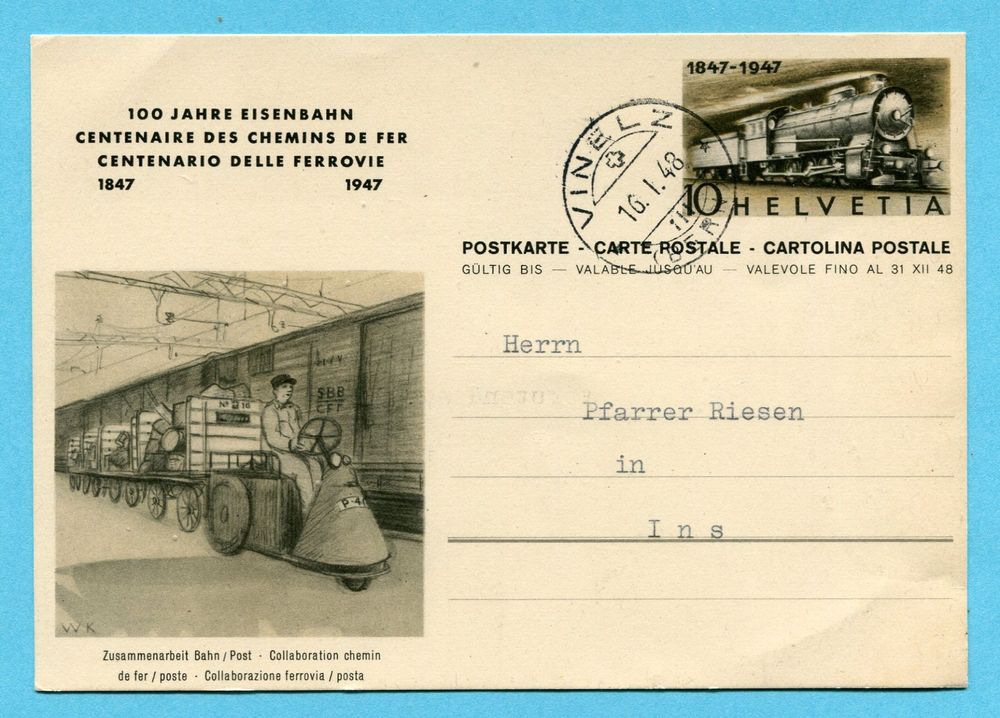 100 JAHRE EISENBAHN
CENTENAIRE DES CHEMINS DE FER
CENTENARIO DELLE FERROVIE
1847 1947
1847-1947
10 HELVETIA
VINELZ
16.I.48
(BERN)
POSTKARTE - CARTE POSTALE - CARTOLINA POSTALE
GÜLTIG BIS — VALABLE JUSQU'AU — VALEVOLE FINO AL 31 XII 48
Herrn
Pfarrer Riesen
in
Ins
SBB
CFF
No 216
P-4
WK
Zusammenarbeit Bahn / Post · Collaboration chemin
de fer / poste · Collaborazione ferrovia / posta